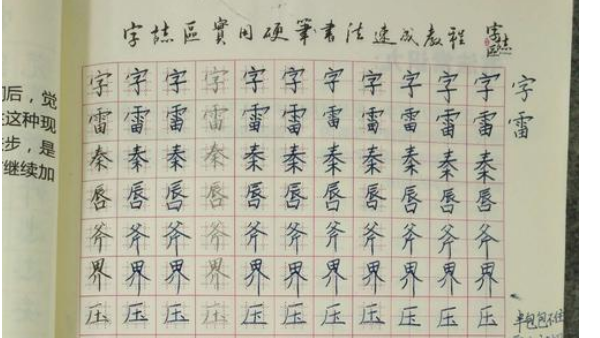 字誌區實用硬筆書法速成教程 字誌區
后，觉
这种现
步，是
继续加
字 字 字 字 字 字 字 字 字 字 字 字
雷 雷 雷 雷 雷 雷 雷 雷 雷 雷 雷 雷
秦 秦 秦 秦 秦 秦 秦 秦 秦 秦 秦
唇 唇 唇 唇 唇 唇 唇 唇 唇 唇 唇
斧 斧 斧 斧 斧 斧 斧 斧 斧 斧 斧
界 界 界 界 界 界 界 界 界 界 界
压 压 压 压 压 压 压 压 压 压 压
半包包不住